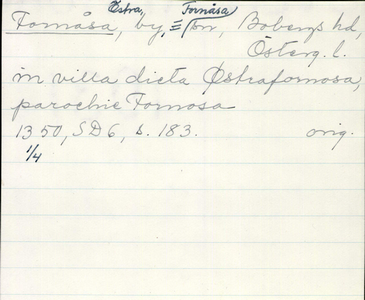 Östra, Fornåsa
Fornåsa, by, ≡ sn, Bobergs hd,
Österg. l.
in villa dicta Østrafornosa,
parochie Fornosa
1350, SD 6, s. 183. orig.
1/4